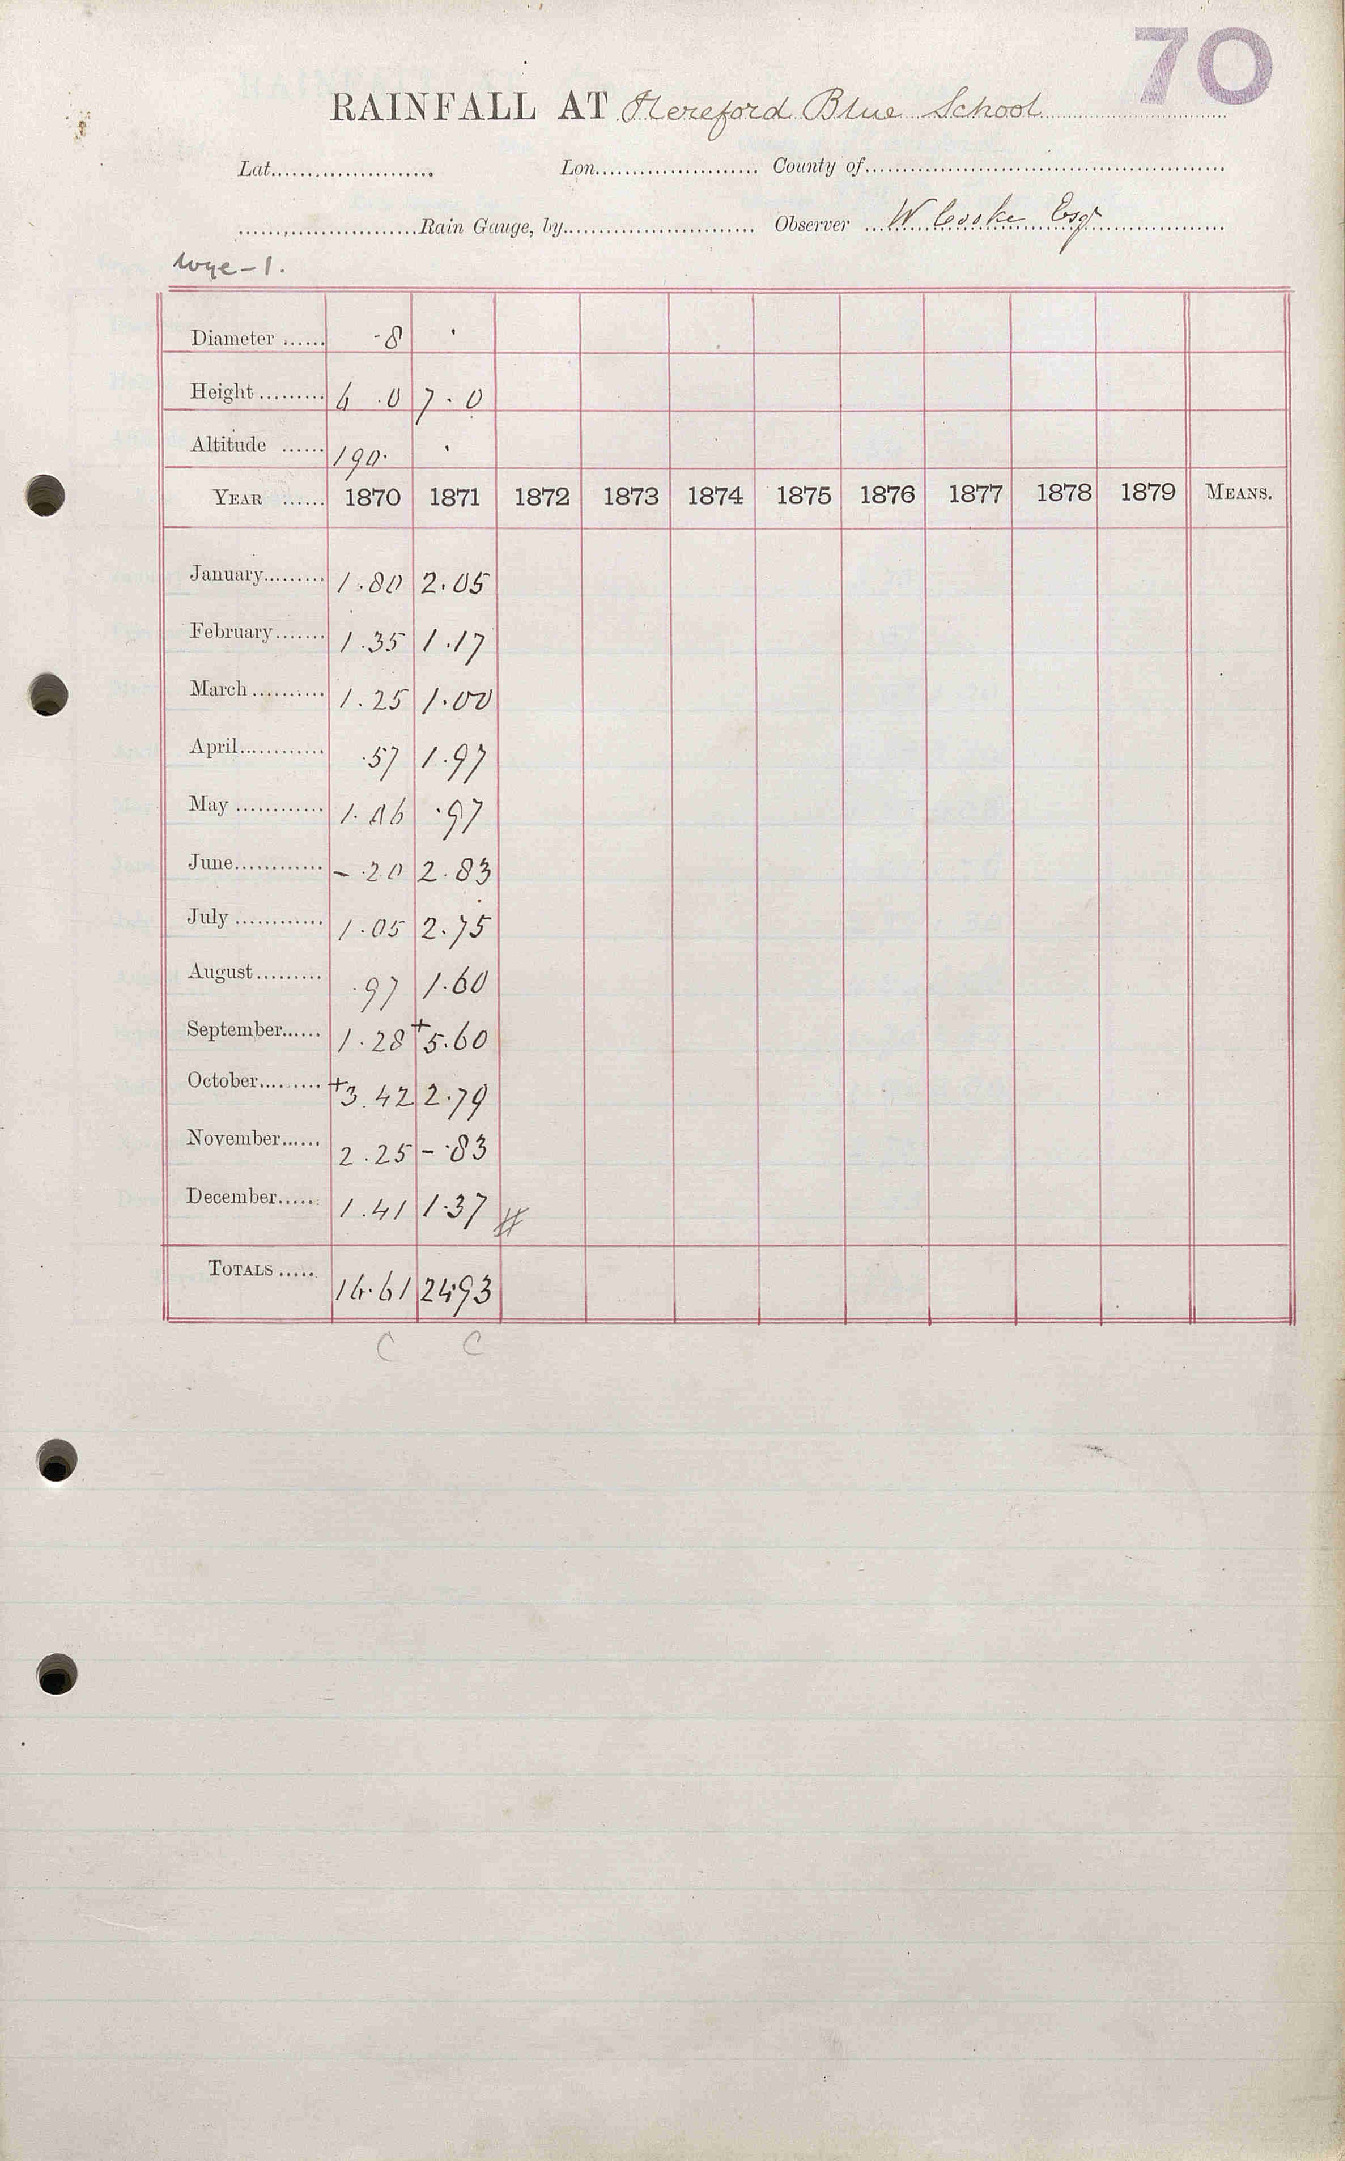 70
RAINFALL AT Hereford Blue School
Lat...................... Lon...................... County of......................
......................Rain Gauge, by...................... Observer W Cooke Esqr
Wye-1.
Diameter ...... -8 '
Height ......... 6 .0 7.0
Altitude ...... 190. '
YEAR ...... 1870 1871 1872 1873 1874 1875 1876 1877 1878 1879 MEANS.
January......... 1.80 2.05
February....... 1.35 1.17
March .......... 1.25 1.00
April............ .57 1.97
May ............ 1.06 .97
June............ - .20 2.83
July ............ 1.05 2.75
August......... .97 1.60
September...... 1.28 +5.60
October......... +3.42 2.79
November...... 2.25 - .83
December..... 1.41 1.37 #
TOTALS ..... 16.61 24.93
C C